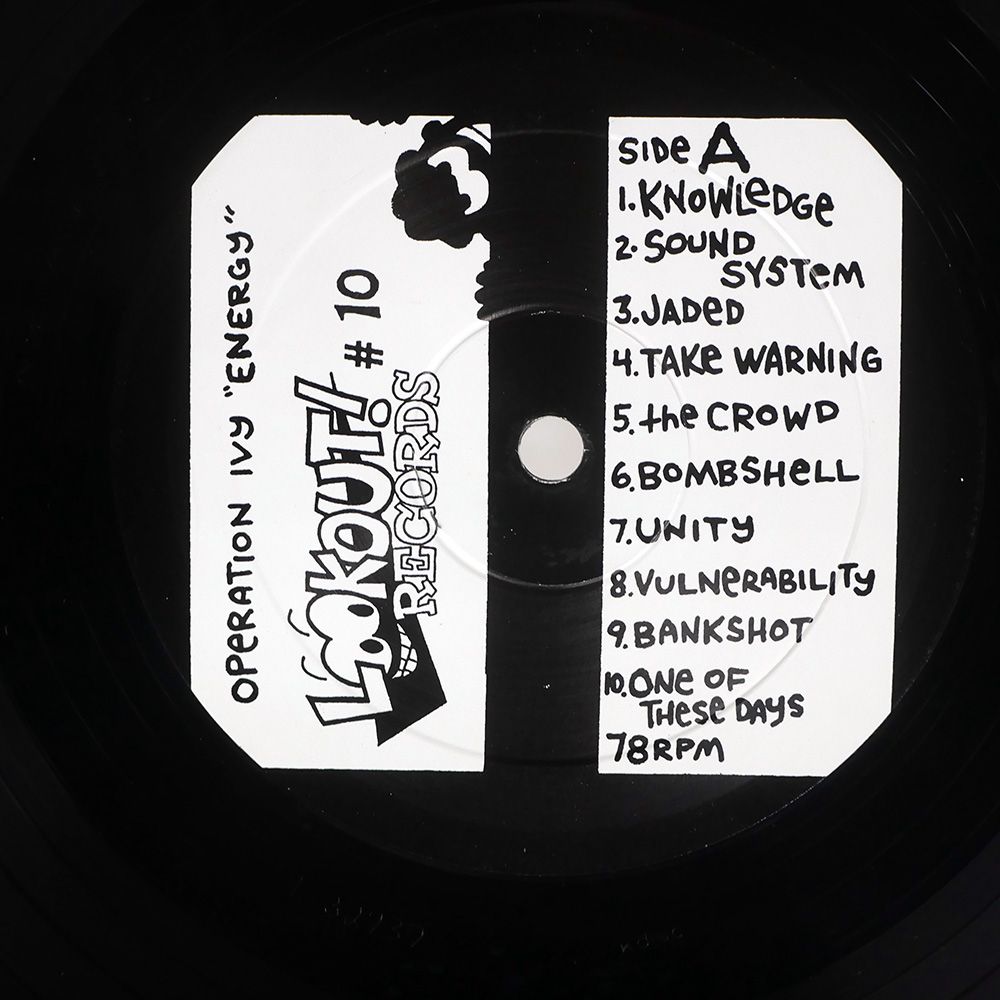 OPERATION IVY "ENERGY"
LOOKOUT! # 10
RECORDS
SIDE A
1. KNOWLEDGE
2. SOUND
SYSTEM
3. JADED
4. TAKE WARNING
5. the CROWD
6. BOMBSHELL
7. UNITY
8. VULNERABILITY
9. BANKSHOT
10. ONE OF
THESE DAYS
78 RPM